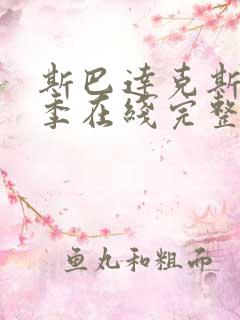 斯巴达克斯
季在线完整
鱼丸和粗面